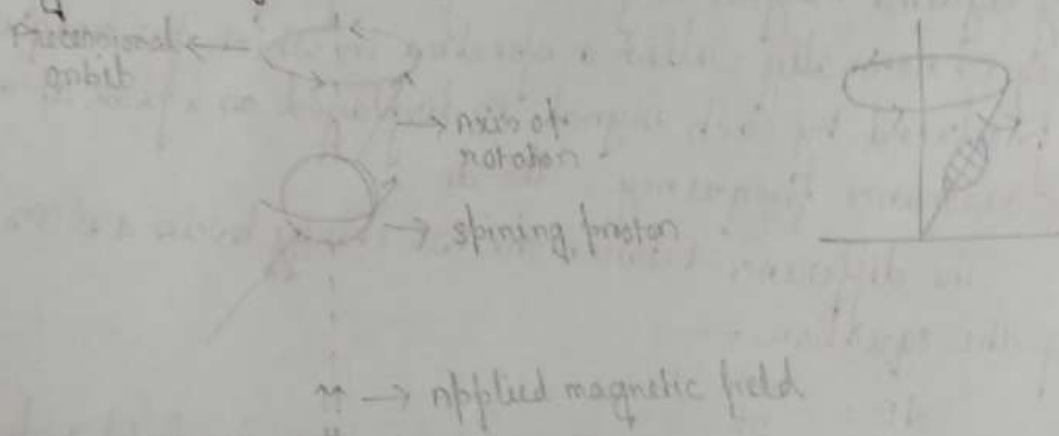 Precessional
orbit
Axis of
rotation
spining proton
Applied magnetic field